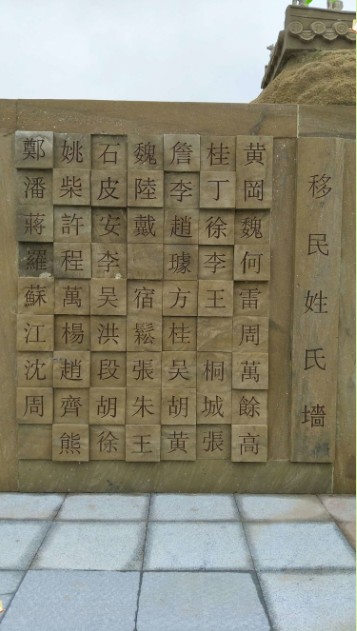 移民姓氏墙
黄岡魏何雷周萬餘高
桂丁徐李王桐城張
詹李趙璩方桂吴胡黄
魏陸戴宿鬆張朱王
石皮安李吴洪段胡徐
姚柴許程萬楊趙齊熊
鄭潘蔣羅蘇江沈周